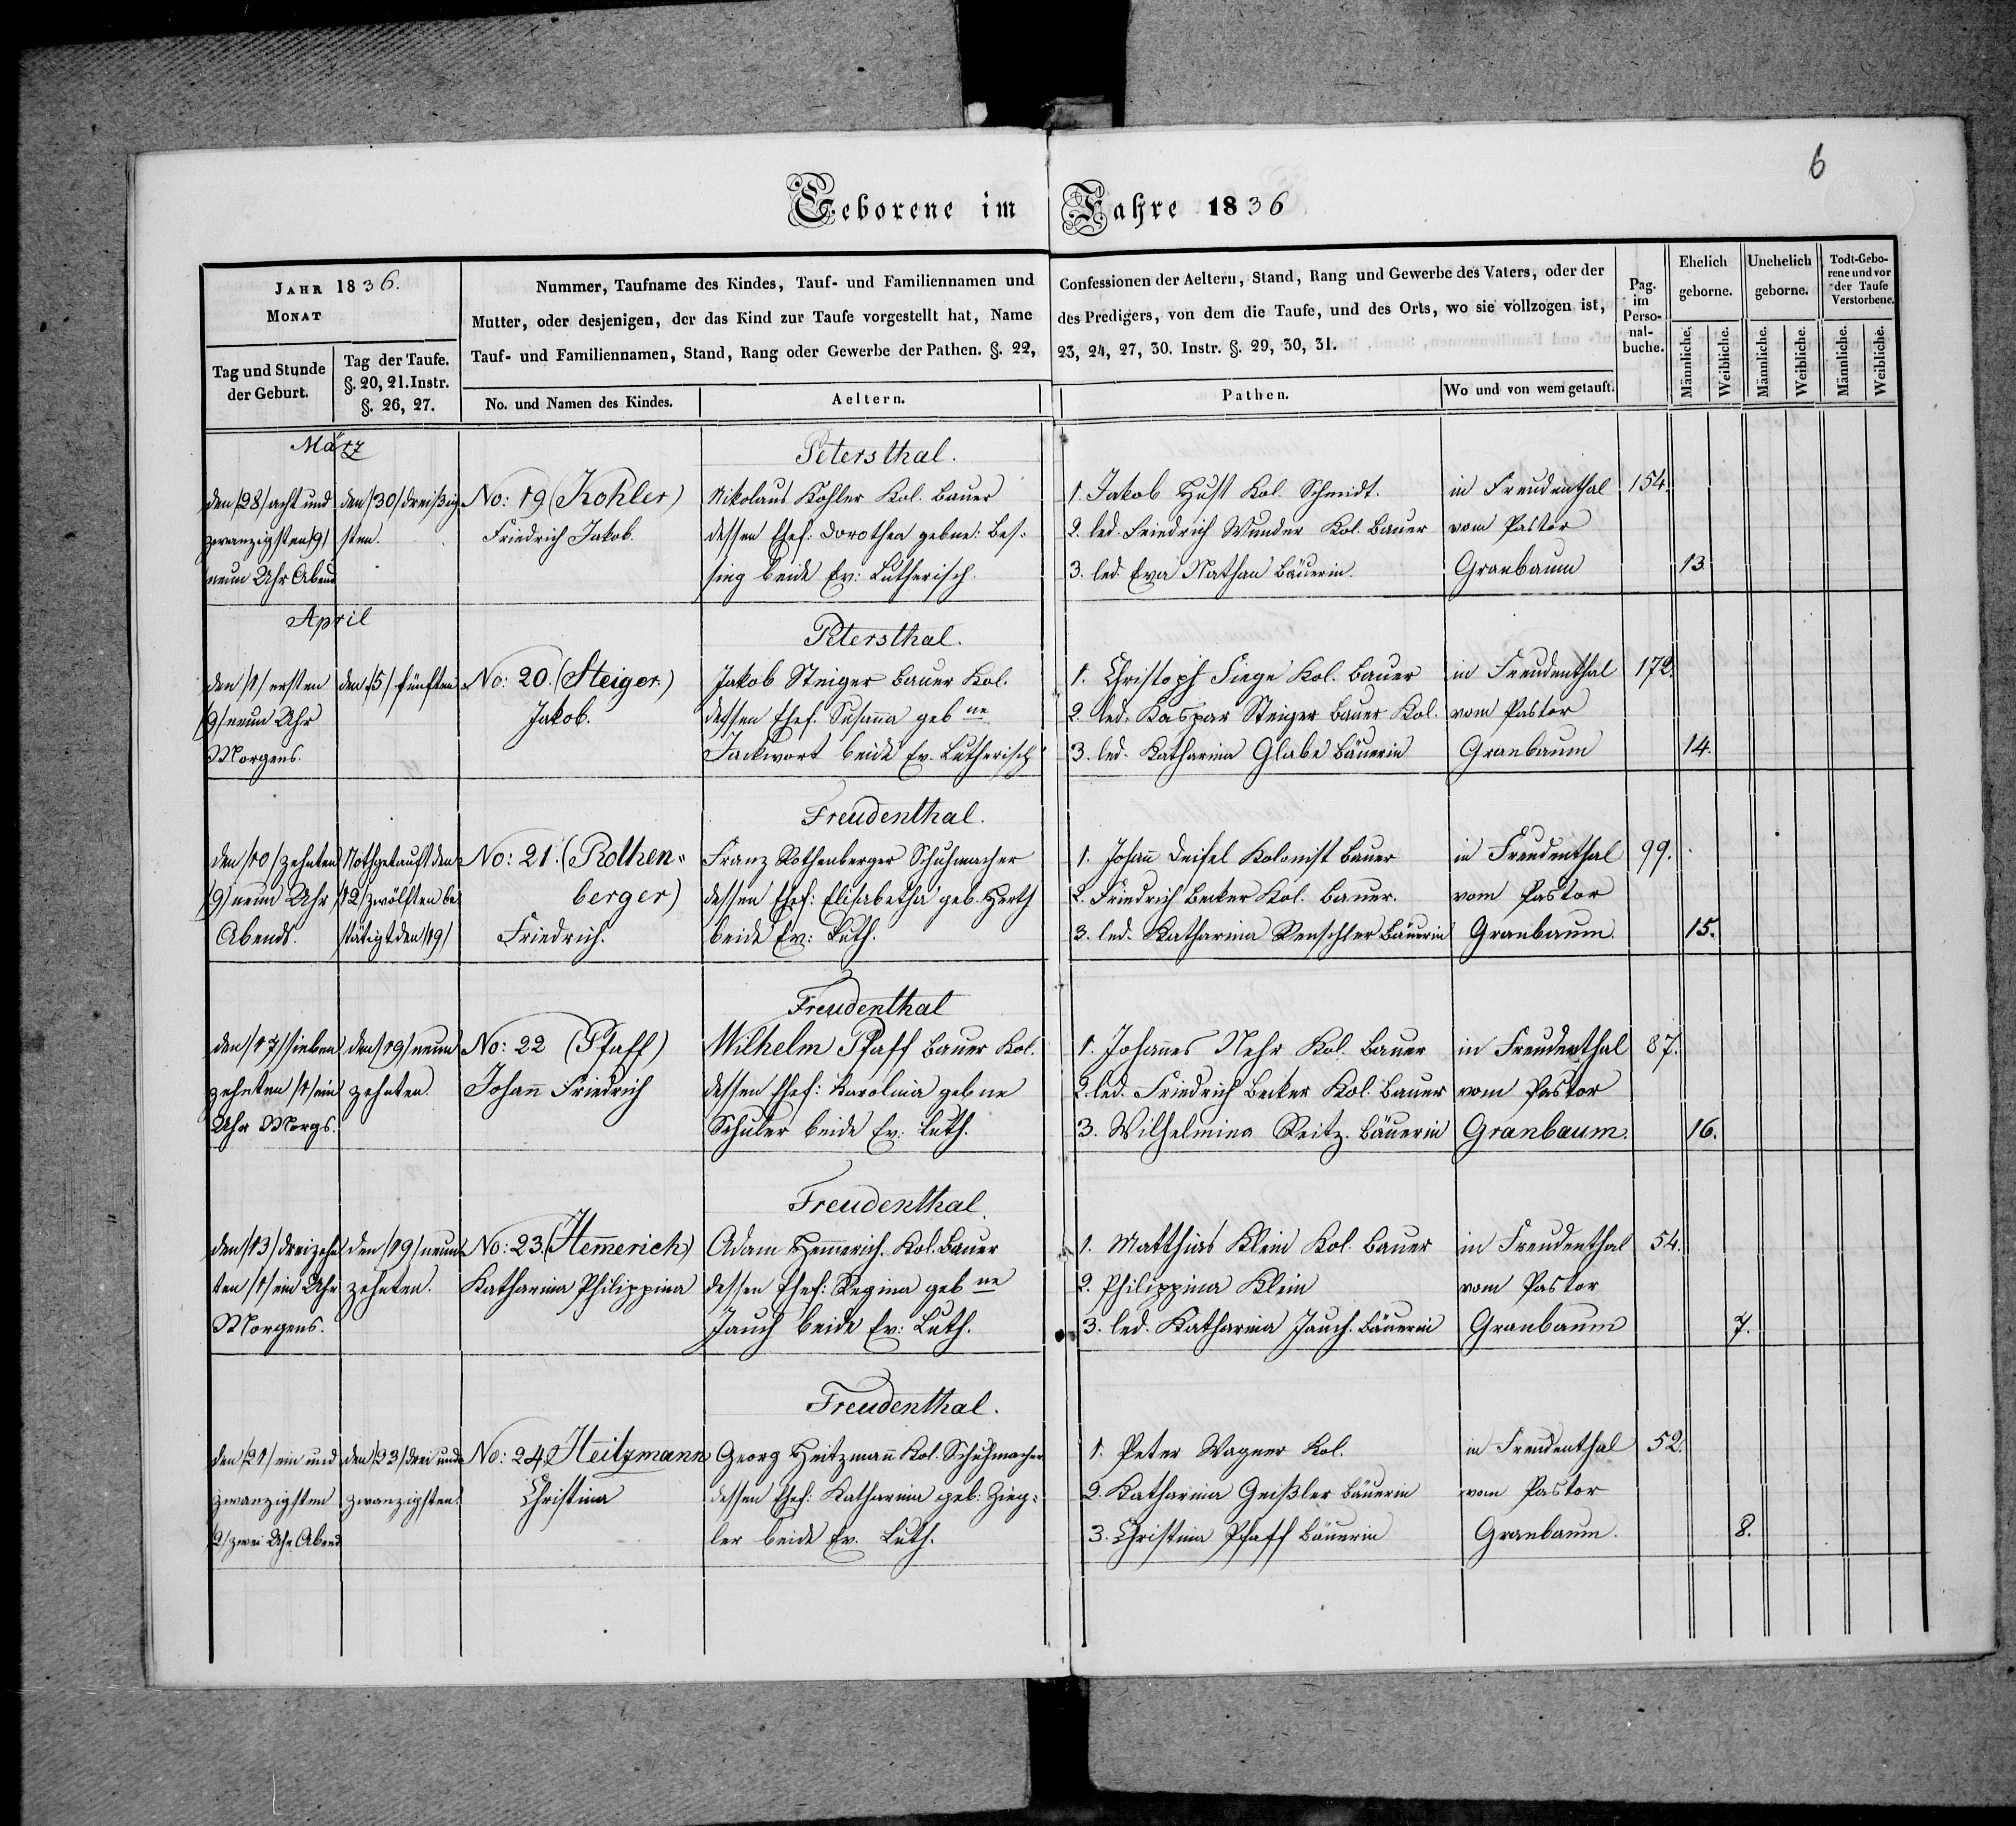 6
Geborene im Jahre 1836
JAHR 1836.
MONAT
Tag und Stunde der Geburt.
Tag der Taufe. §. 20, 21. Instr. §. 26, 27.
Nummer, Taufname des Kindes, Tauf- und Familiennamen und
Mutter, oder desjenigen, der das Kind zur Taufe vorgestellt hat, Name
Tauf- und Familiennamen, Stand, Rang oder Gewerbe der Pathen. §. 22,
No. und Namen des Kindes.
Aeltern.
Confessionen der Aeltern, Stand, Rang und Gewerbe des Vaters, oder der
des Predigers, von dem die Taufe, und des Orts, wo sie vollzogen ist,
23, 24, 27, 30. Instr. §. 29, 30, 31.
Pathen.
Wo und von wem getauft.
Pag. im Perso-nal-buche.
Ehelich geborne.
Unehelich geborne.
Todt-Gebo-rene und vor der Taufe Verstorbene.
Männliche. Weibliche. Männliche. Weibliche. Männliche. Weibliche.
März
Petersthal.
den /28/ acht und den /30/ dreißig- No: 19 (Kohler) Nikolaus Kohler Kol. Bauer 1. Jakob Hust Kol. Schmidt. in Freudenthal 154.
zwanzigsten /9/ sten. Friedrich Jakob. dessen Ehef: Dorothea gebne: Bes- 2. led. Friedrich Wunder Kol. Bauer vom Pastor
neun Uhr Abend sing beide Ev: Lutherisch. 3. led. Eva Nathan Bäuerin. Granbaum 13.
April
Petersthal.
den /1/ ersten den /5/ fünften No: 20. (Steiger.) Jakob Steiger Bauer Kol. 1. Christoph Siege Kol. Bauer in Freudenthal 172.
/9/ neun Uhr Jakob. dessen Ehef. Susanna geb ne 2. led. Kaspar Steiger Bauer Kol. vom Pastor
Morgens. Jackwort beide Ev. Lutherisch 3. led. Katharina Glabe Bäuerin Granbaum 14.
Freudenthal.
den /10/ zehnten Nothgetauft den No: 21. (Rothen- Franz Rothenberger Schuhmacher 1. Johann Deisel Kolonist Bauer in Freudenthal 99.
/9/ neun Uhr /12/ zwölften be- berger) dessen Ehef: Elisabetha geb. Herth 2. Friedrich Becker Kol. Bauer. vom Pastor
Abends. stätigt den /19/ Friedrich. beide Ev: Luth. 3. led. Katharina Renschler Bäuerin Granbaum. 15.
Freudenthal
den /17/ sieben den /19/ neun No: 22 (Pfaff) Wilhelm Pfaff Bauer Kol. 1. Johannes Nehr Kol. Bauer in Freudenthal 87.
zehnten /1/ ein zehnten. Johann Friedrich dessen Ehef: Karolina gebne 2. led. Friedrich Becker Kol. Bauer vom Pastor
Uhr Morgs. Schuler beide Ev: Luth. 3. Wilhelmina Reitz. Bäuerin Granbaum. 16.
Freudenthal.
den /13/ dreizehn den /19/ neun No: 23. (Hemmerich) Adam Hemmerich. Kol. Bauer 1. Matthias Klein Kol. Bauer in Freudenthal 54.
ten /1/ ein Uhr zehnten. Katharina Philippina dessen Ehef: Regina geb ne 2. Philippina Klein vom Pastor
Morgens. Jauch beide Ev: Luth. 3. led. Katharina Jauch. Bäuerin Granbaum 7.
Freudenthal.
den /21/ ein und den /23/ drei und No: 24. Heitzmann Georg Heitzmann Kol. Schuhmacher 1. Peter Wagner Kol. in Freudenthal 52.
zwanzigsten zwanzigsten. Christina dessen Ehef: Katharina geb: Zieg- 2. Katharina Geißler Bäuerin vom Pastor
/2/ zwei Uhr Abend ler beide Ev. Luth. 3. Christina Pfaff Bäuerin Granbaum. 8.